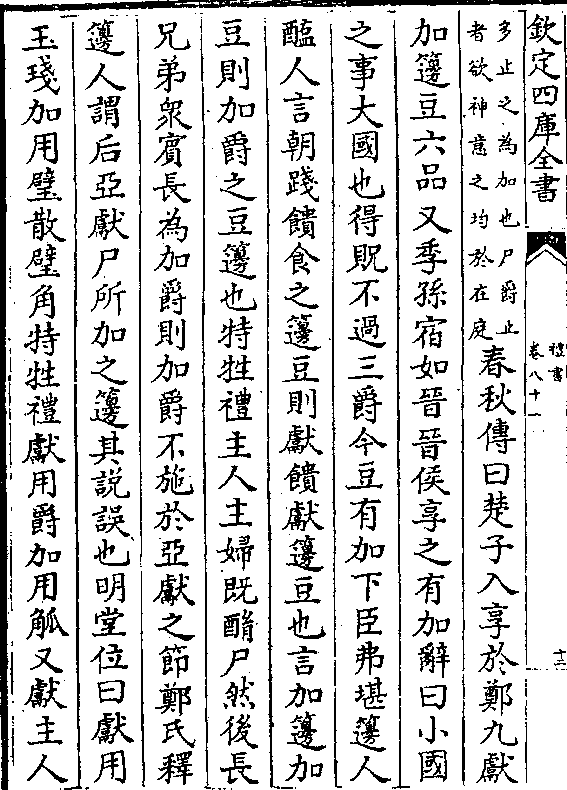 欽定四庫全書
禮書
卷八十一
十二
多止之為加也尸爵止
者欲神意之均於在庭
春秋傳曰楚子入享於鄭九獻
加籩豆六品又季孫宿如晉晉侯享之有加辭曰小國
之事大國也得貺不過三爵今豆有加下臣弗堪籩人
醢人言朝踐饋食之籩豆則獻饋獻籩豆也言加籩加
豆則加爵之豆籩也特牲禮主人主婦既酳尸然後長
兄弟衆賓長為加爵則加爵不施於亞獻之節鄭氏釋
籩人謂后亞獻尸所加之籩其説誤也明堂位曰獻用
玉琖加用璧散璧角特牲禮獻用爵加用觚又獻主人